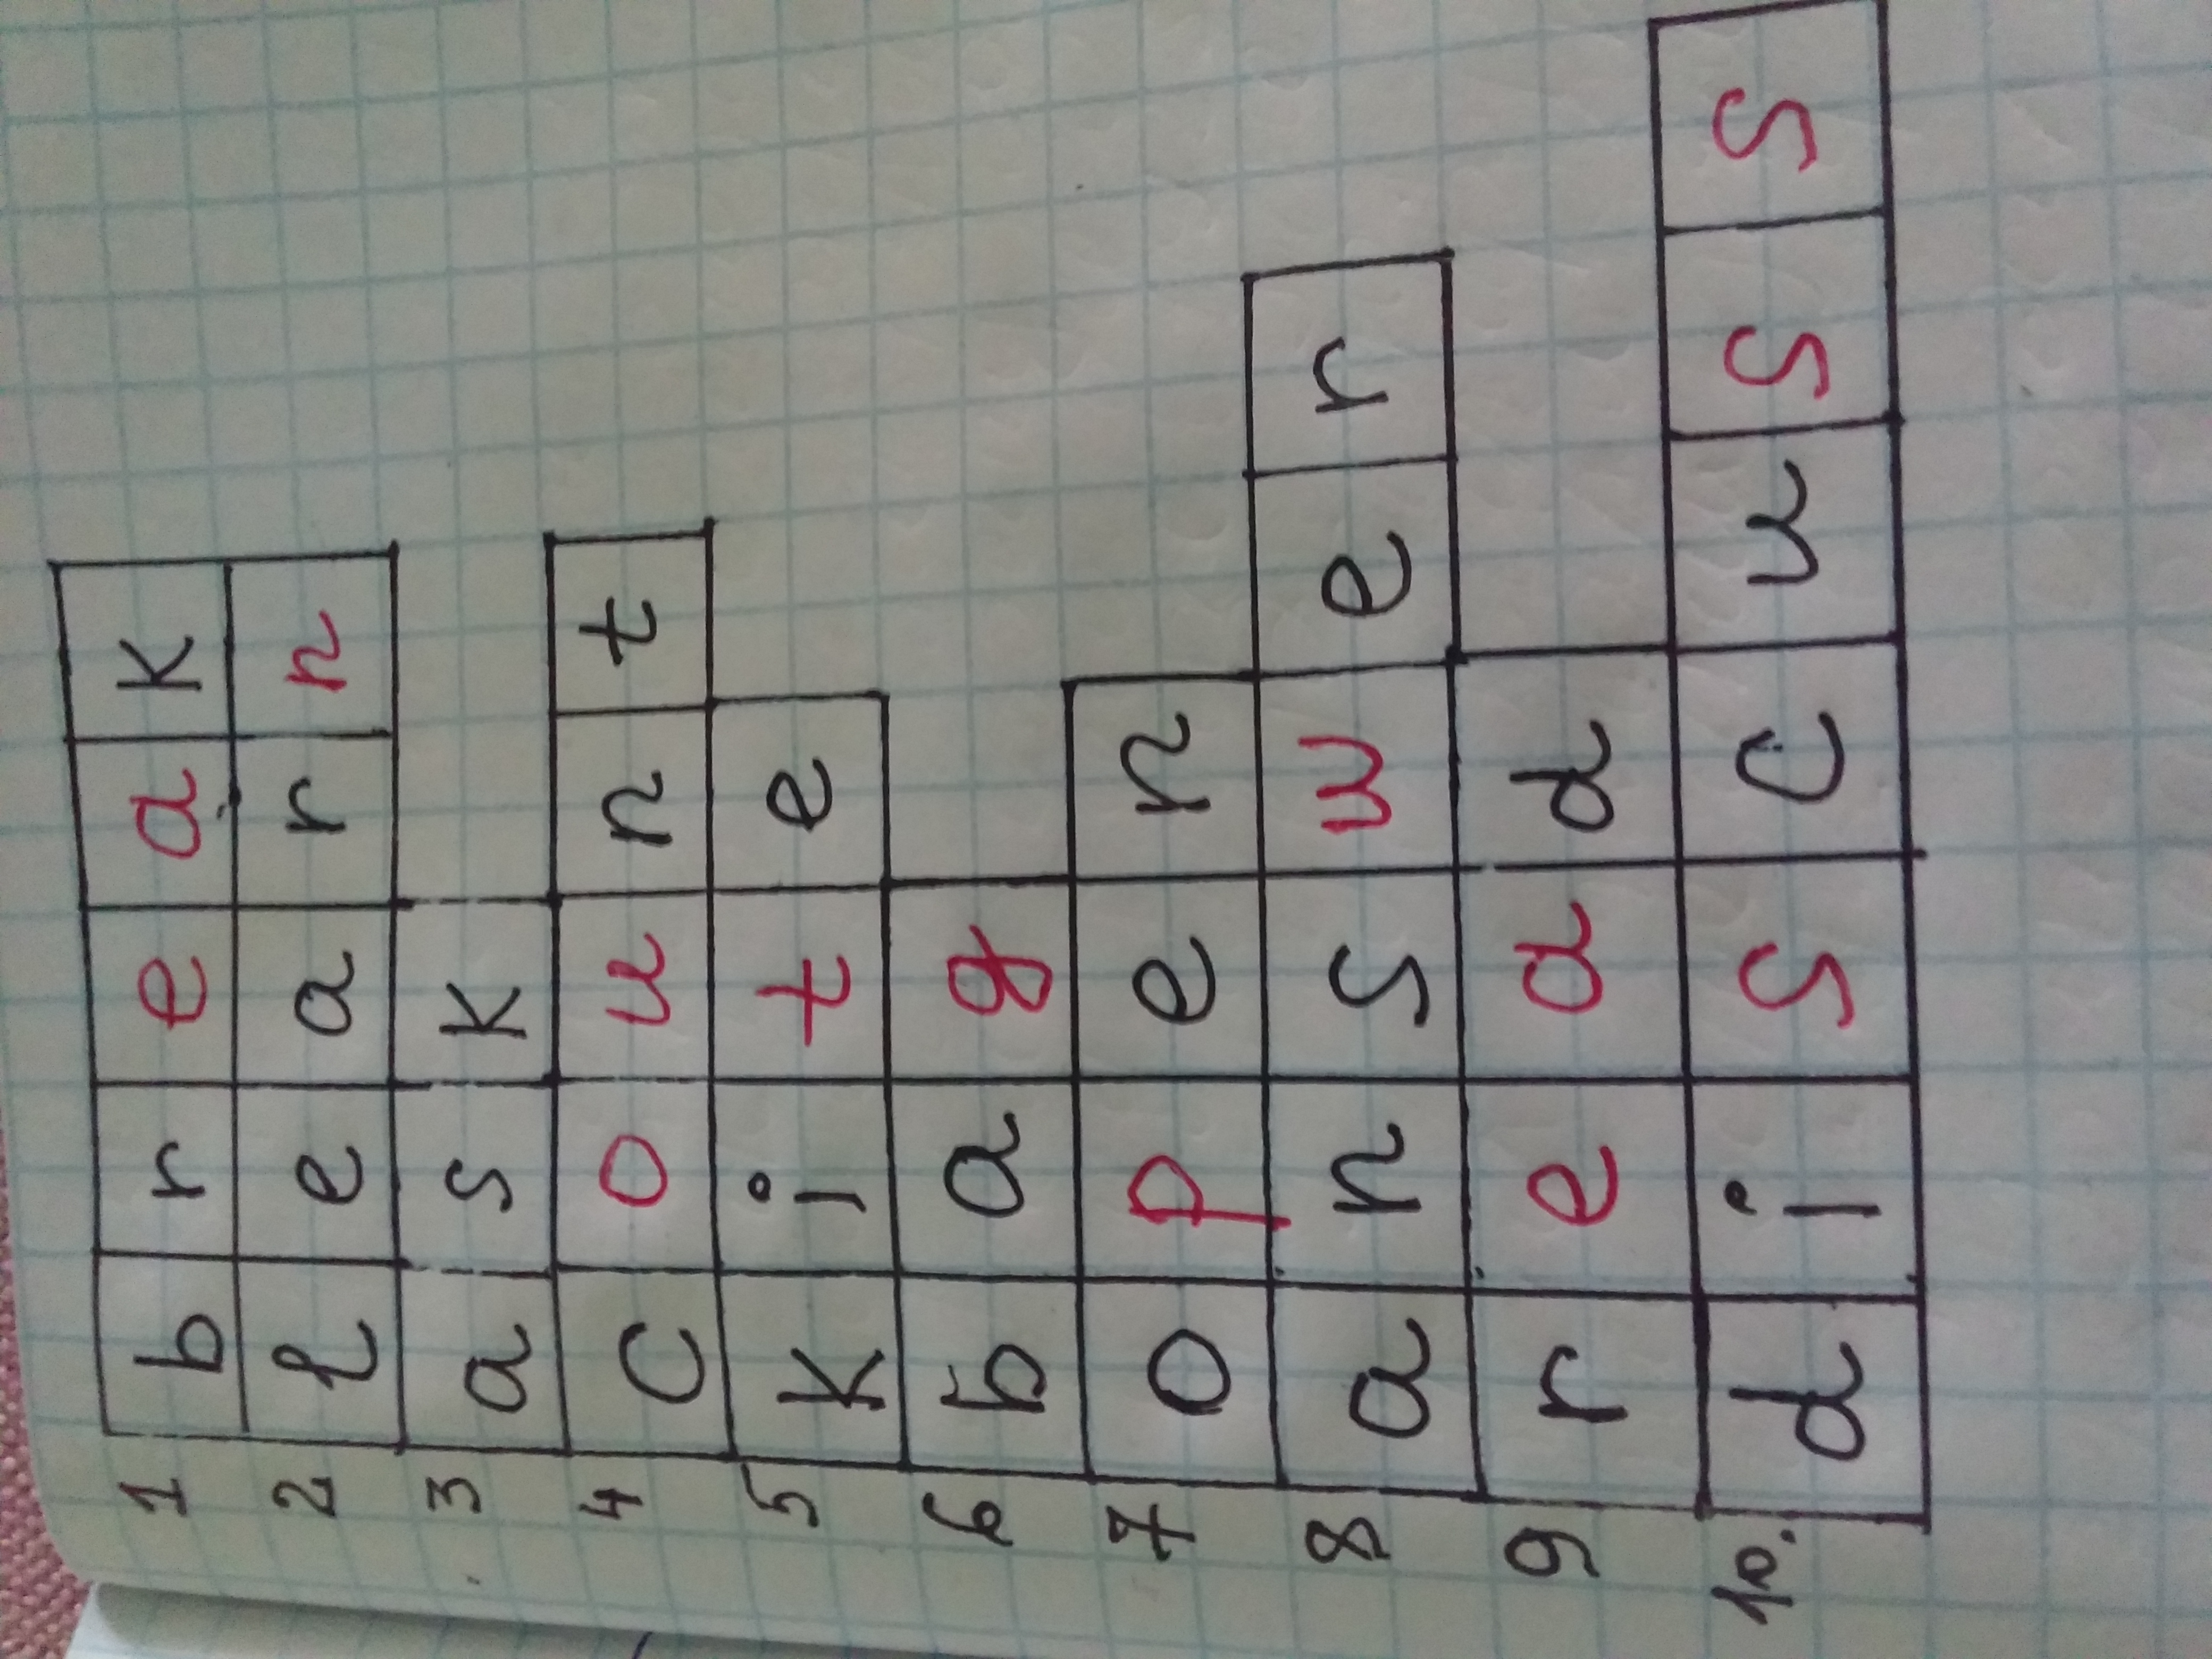 1 break
2 learn
3 ask
4 count
5 kite
6 bag
7 open
8 answer
9 read
10. discuss